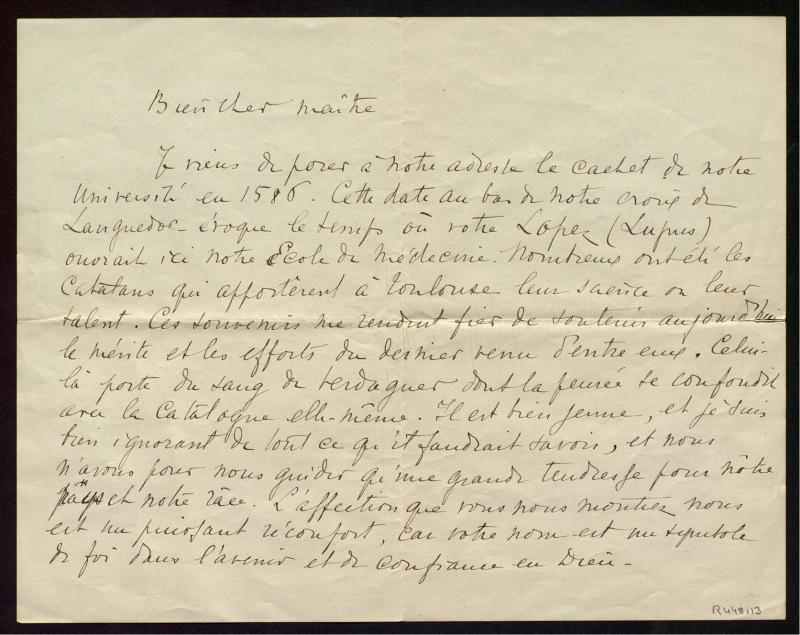 Bien Cher Maître
Je viens de poser à notre adresse le cachet de notre
Université en 1586. Cette date au bas de notre croix de
Languedoc évoque le temps où votre Lopez (Lupus)
ouvrait ici notre École de Médecine. Nombreux ont été les
Catalans qui apportèrent à Toulouse leur science ou leur
talent. Ces souvenirs me rendent fier de soutenir aujourd'hui
le mérite et les efforts du dernier venu d'entre eux. Celui-
là porte du sang de Verdaguer dont la pensée se confondit
avec la Catalogne elle-même. Il est bien jeune, et je suis
bien ignorant de tout ce qu'il faudrait savoir, et nous
n'avons pour nous guider qu'une grande tendresse pour nôtre
pays et notre race. L'affection que vous nous montrez nous
est un puissant réconfort, car votre nom est un symbole
de foi dans l'avenir et de confiance en Dieu -
R448113